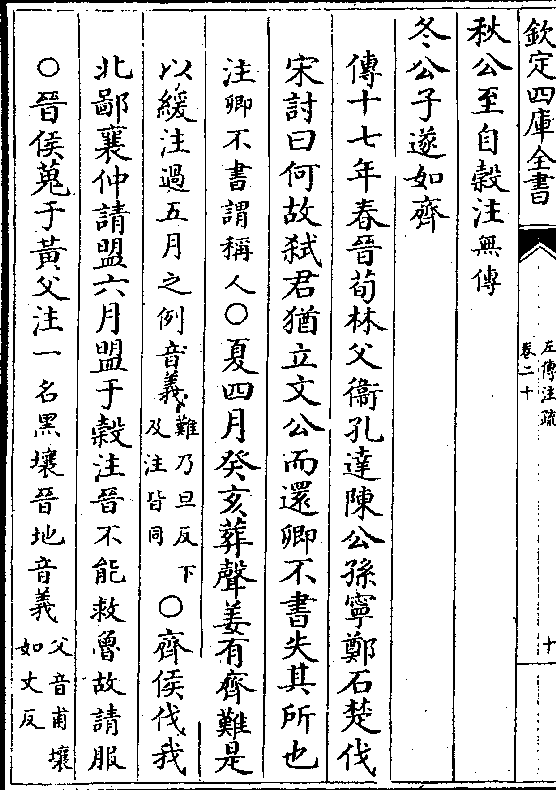 欽定四庫全書
左傳注疏
卷二十
十
秋公至自穀注無傳
冬公子遂如齊
傳十七年春晉荀林父衞孔達陳公孫寧鄭石楚伐
宋討曰何故弑君猶立文公而還卿不書失其所也
注卿不書謂稱人○夏四月癸亥葬聲姜有齊難是
以緩注過五月之例音義難乃旦反下及注皆同○齊侯伐我
北鄙襄仲請盟六月盟于穀注晉不能救魯故請服
○晉侯蒐于黃父注一名黑壤晉地音義父音甫壤如丈反